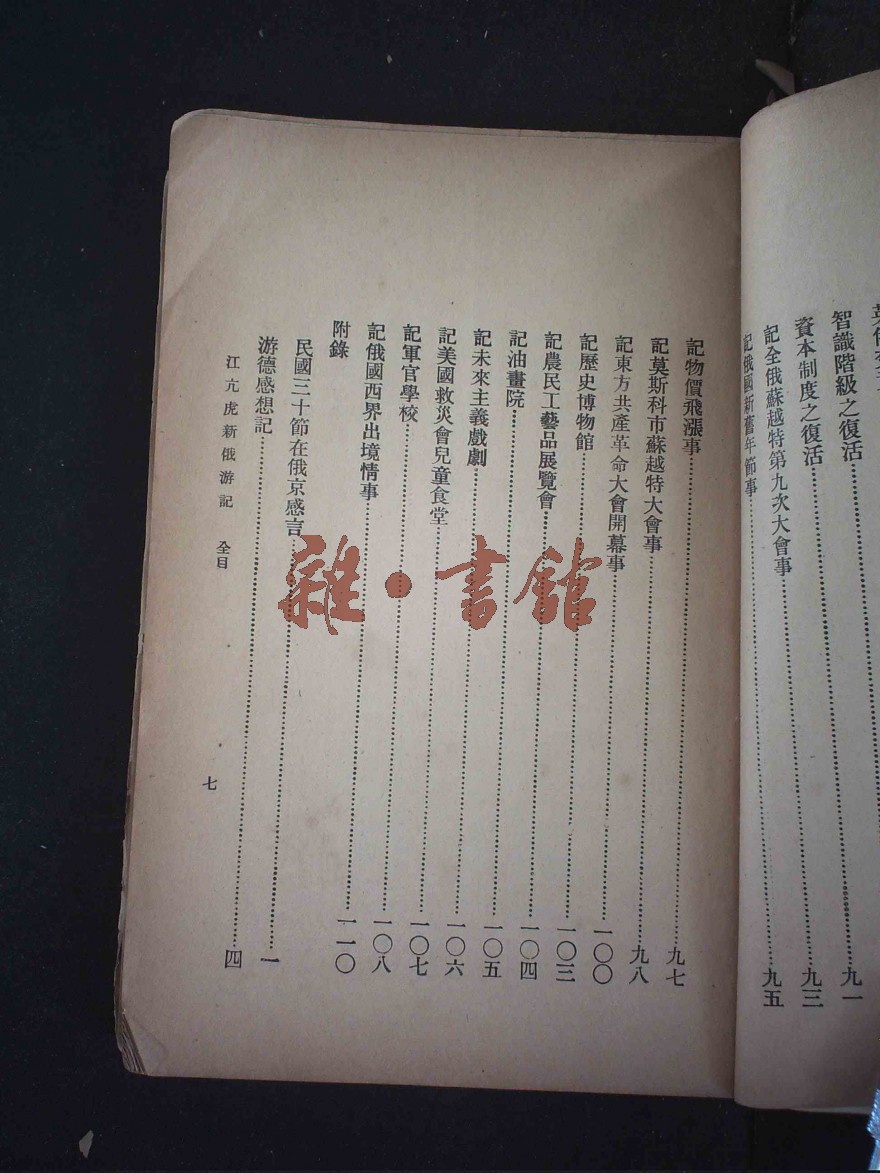 智識階級之復活……九一
資本制度之復活……九三
記全俄蘇越特第九次大會事……九五
記俄國新舊年節事
記物價飛漲事……九七
記莫斯科市蘇越特大會事……九八
記東方共產革命大會開幕事……一〇〇
記歷史博物館……一〇三
記農民工藝品展覽會……一〇四
記油畫院……一〇五
記未來主義戲劇……一〇六
記美國救災會兒童食堂……一〇七
記軍官學校……一〇八
記俄國西界出境情事……一一〇
附錄
民國三十節在俄京感言……一
游德感想記……四
江亢虎新俄游記 全目
七
雜·書館